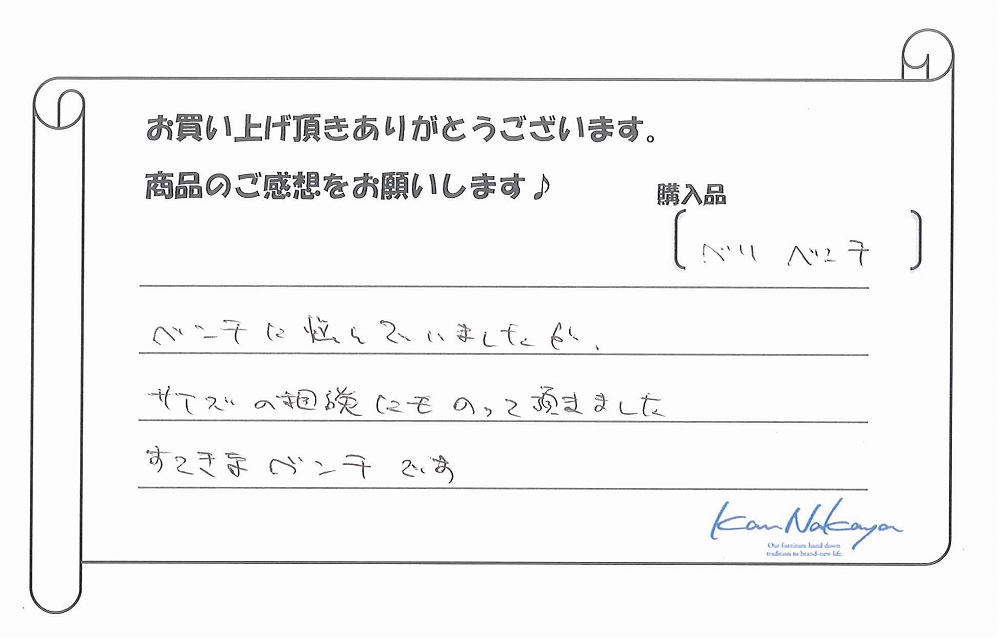 お買い上げ頂きありがとうございます。
商品のご感想をお願いします♪
購入品
ベリ ベンチ
ベンチに悩んでいましたが、
サイズの相談にものって頂きました
すてきなベンチです
Kan Nakaya
Our furniture hand down
tradition to brand-new life.